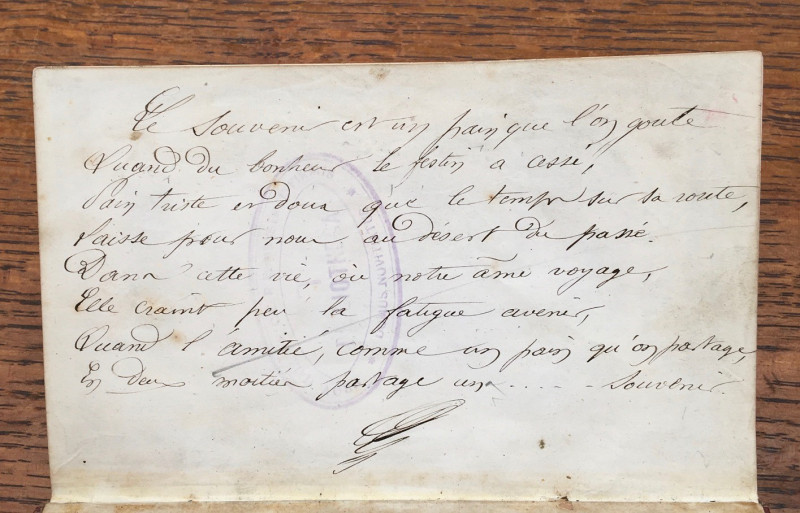 Le Souvenir est un pain que l'on goute
Quand du bonheur le festin a cessé,
Pain triste et doux que le temps sur sa route,
Laisse pour nous au désert du passé.
Dans cette vie, où notre âme voyage,
Elle craint peu la fatigue avenir,
Quand l'amitié, comme un pain qu'on partage,
En deux moitiés partage un..... Souvenir.